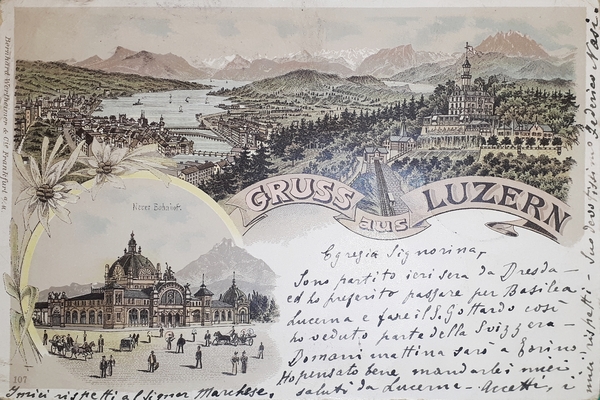 GRUSS aus LUZERN
Neuer Bahnhof.
Egregia Signorina,
Sono partito ieri sera da Dresda -
ed ho preferito passare per Basilea
Lucerna e fare il Gottardo così
ho veduto parte della Svizzera -
Domani mattina sarò a Torino.
Ho pensato bene mandarle i miei
saluti da Lucerna - Accetti, i
miei rispetti - Suo devotissimo Federico
I miei rispetti al Signor Marchese.
107